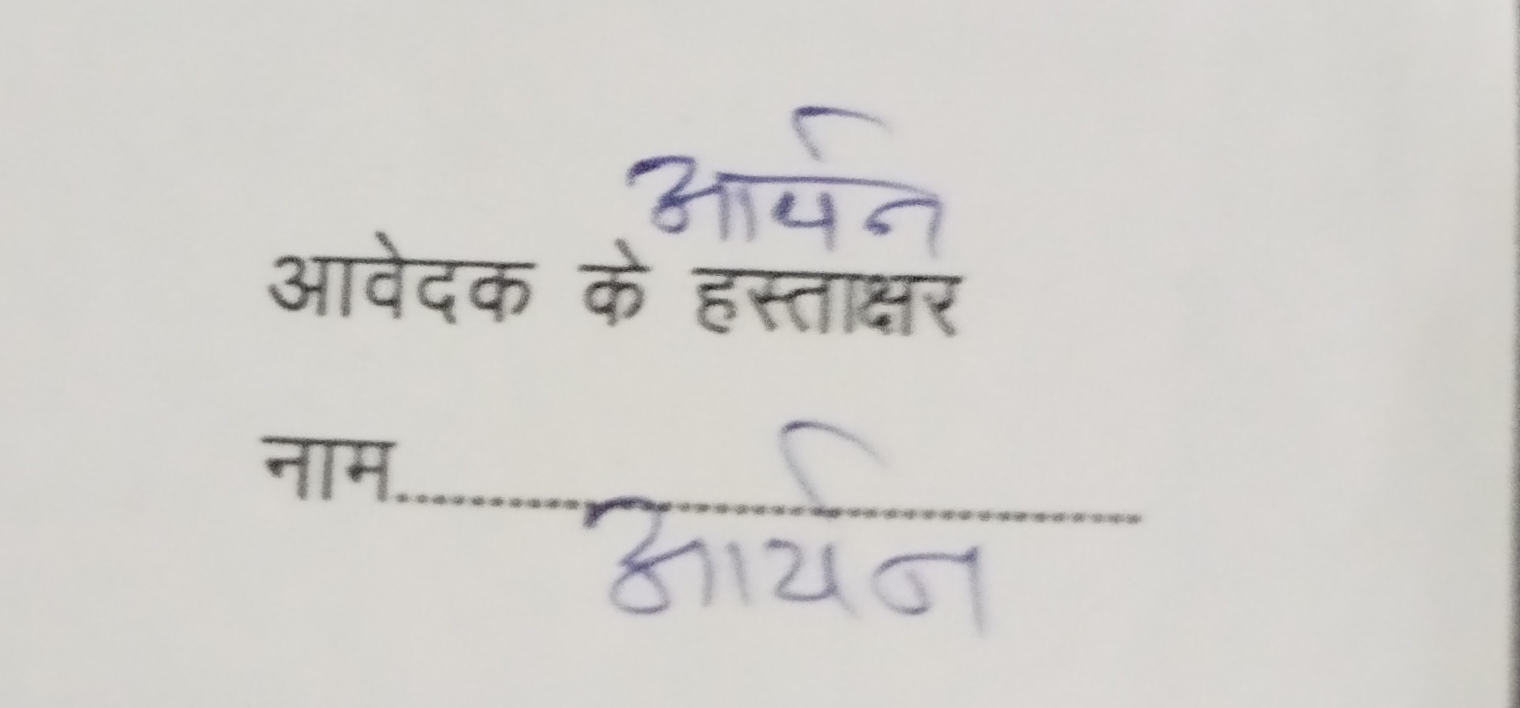 आर्यन
आवेदक के हस्ताक्षर
नाम....................................................
आर्यन